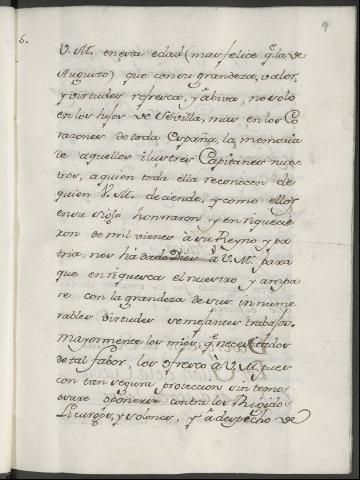 5.
9
V. M. en esta edad (mas felice q̃ la de
Augusto) que con su grandeza, valor,
y virtudes refresca, y abiva, no solo
en los hijos de Sevilla, mas en los Co
razones de toda España, la memoria
de aquellos ilustres Capitanes nues
tros, a quien toda ella reconocen de
quien V. M. deciende, y como ellos
en su siglo honrraron y enrriquecie
ron de mil vienes à su Reyno y pa
tria, nos ha dado Dios à V. M. para
que enrriquesca el nuestro y ampa
re con la grandeza de sus innume
rables virtudes semejantes trabajos.
Mayormente los mios, q̃ necesitados
de tal fabor, los ofresco à V. M. pues
con tan segura proteccion sin temor
osare oponerse contra los Rigidos
Licurgos, y solones, y à despecho de